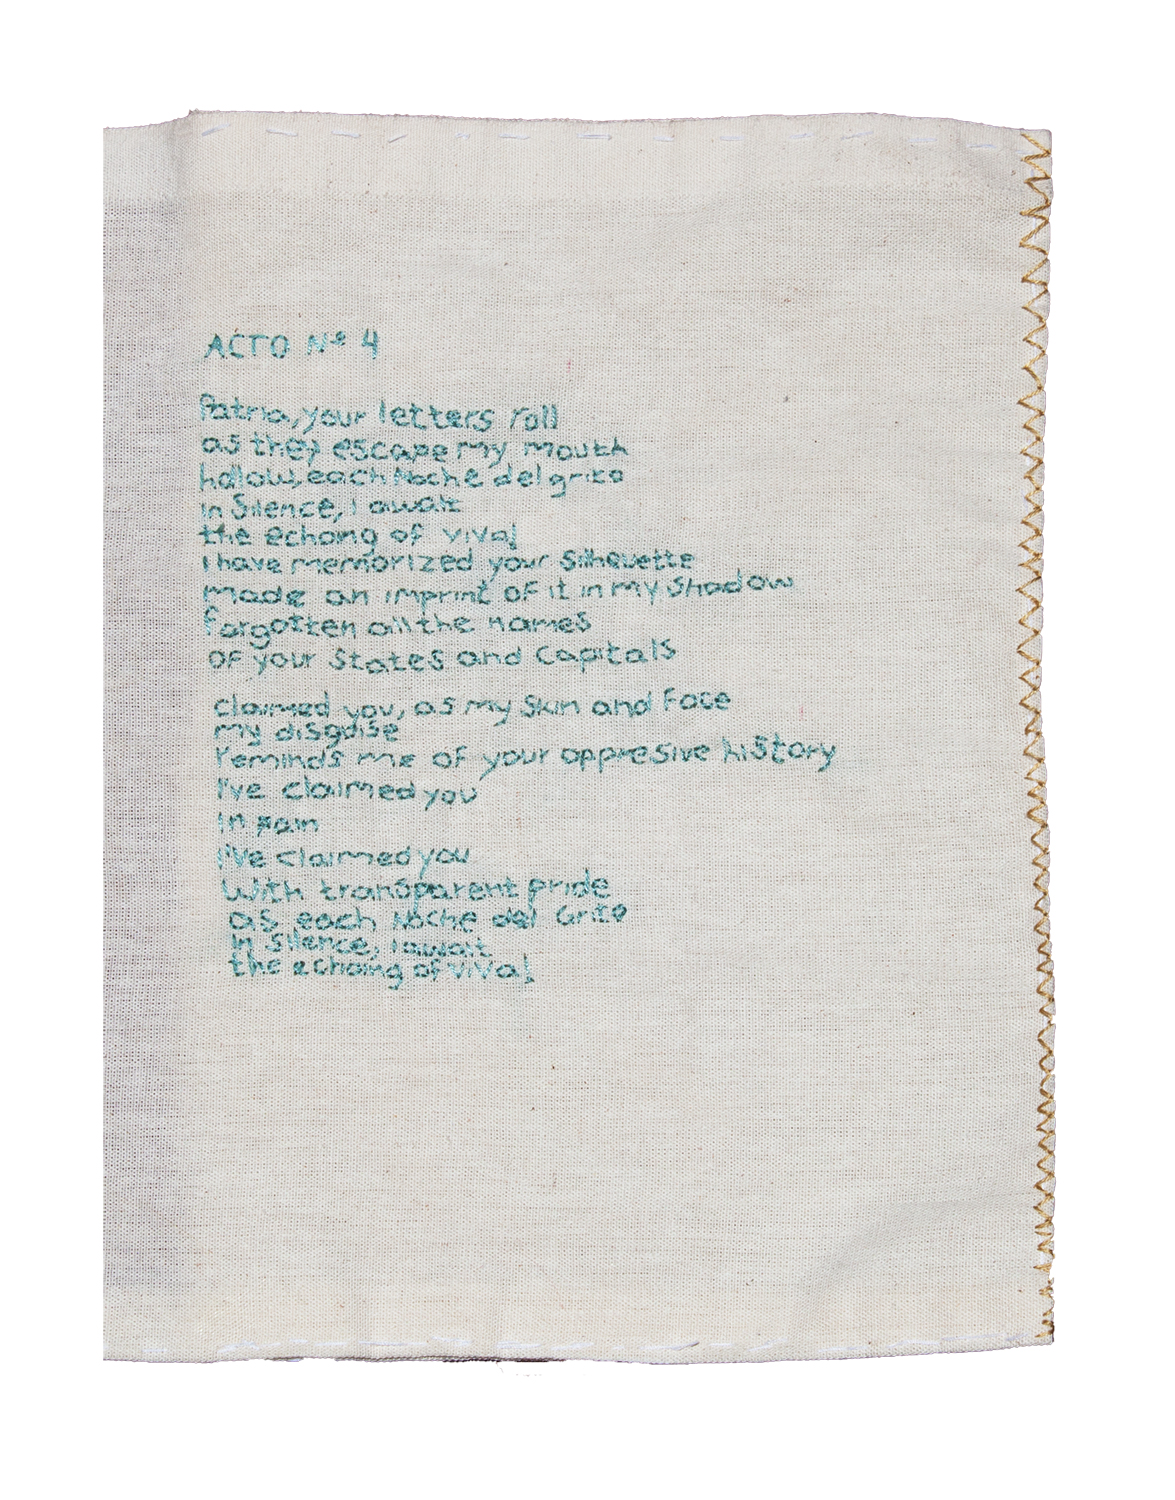 ACTO Nº 4
Patria, your letters roll
as they escape my mouth
hollow, each Noche del grito
in Silence, I await
the echoing of viva!
I have memorized your Silhouette
made an imprint of it in my Shadow
forgotten all the names
of your States and Capitals
claimed you, as my Skin and Face
my disguise
reminds me of your oppresive history
I've claimed you
in pain
I've claimed you
With transparent pride
as each Noche del Grito
in Silence, I await
the echoing of viva!